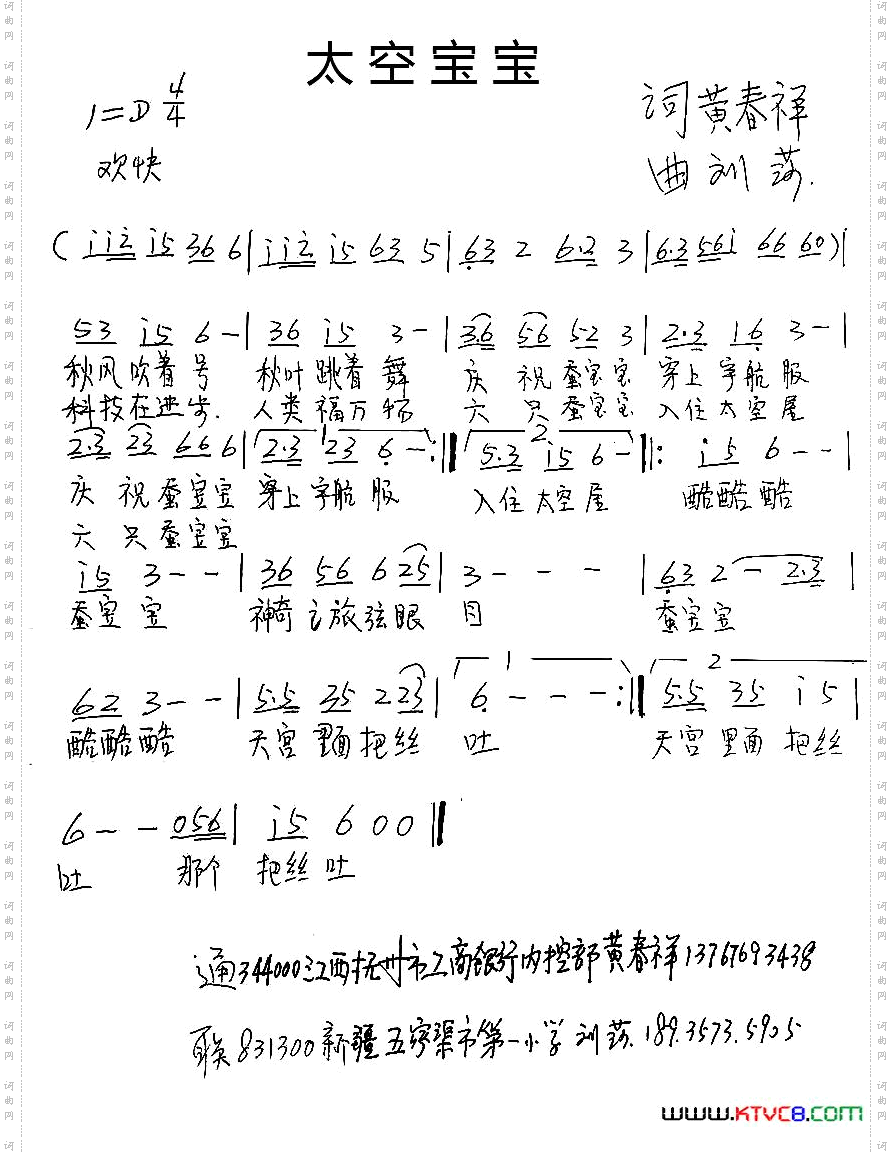 太空宝宝
1=D 4/4
词 黄春祥
欢快
曲 刘莎.
( i i 2 i 5 3 6 6 | i i 2 i 5 6 3 5 | 6 3 2 6·2 3 | 6·3 5 6 i 6 6 6 0 ) |
5 3 i 5 6 - | 3 6 i 5 3 - | 3 6 5 6 5 2 3 | 2·3 1 6 3 - |
秋风吹着号 秋叶跳着舞 庆祝蚕宝宝 穿上宇航服
科技在进步. 人类福万物 六只蚕宝宝 入住太空屋
2·3 2 3 6 6 6 | 1 2·3 2 3 6 - :‖ 2 5·3 i 5 6 - ‖: i 5 6 - - |
庆祝蚕宝宝 穿上宇航服 入住太空屋 酷酷酷
六只蚕宝宝
i 5 3 - - | 3 6 5 6 6 2 5 | 3 - - - | 6 3 2 - 2·3 |
蚕宝宝 神奇之旅弦眼目 蚕宝宝
6 2 3 - - | 5·5 3 5 2 2 3 | 1 6 - - - :‖ 2 5·5 3 5 i 5 |
酷酷酷 天宫里面把丝吐 天宫里面把丝
6 - - 0 5 6 | i 5 6 0 0 ‖
吐 那个把丝吐
通344000江西抚州市工商银行内控部黄春祥13767693438
联831300新疆五家渠市第一小学刘莎.189.3573.5905
www.KTVC8.com
词曲网